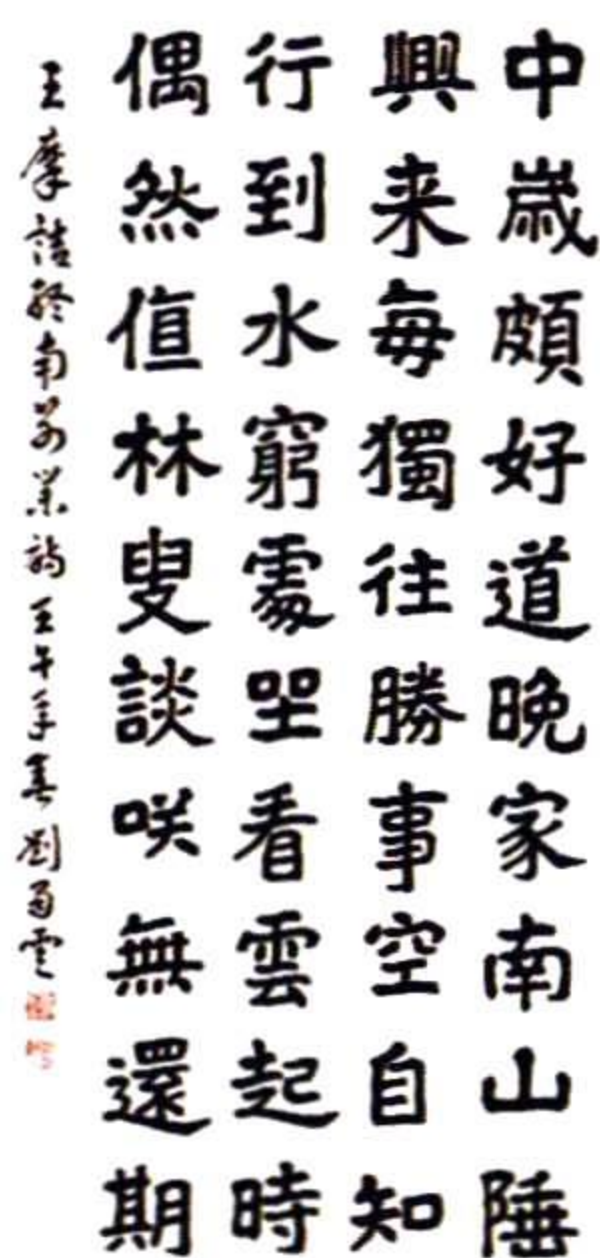 中嵗頗好道晚家南山陲
興来每獨往勝事空自知
行到水窮處坐看雲起時
偶然值林叟談咲無還期
王摩詰終南别業詩壬午年春劉雲